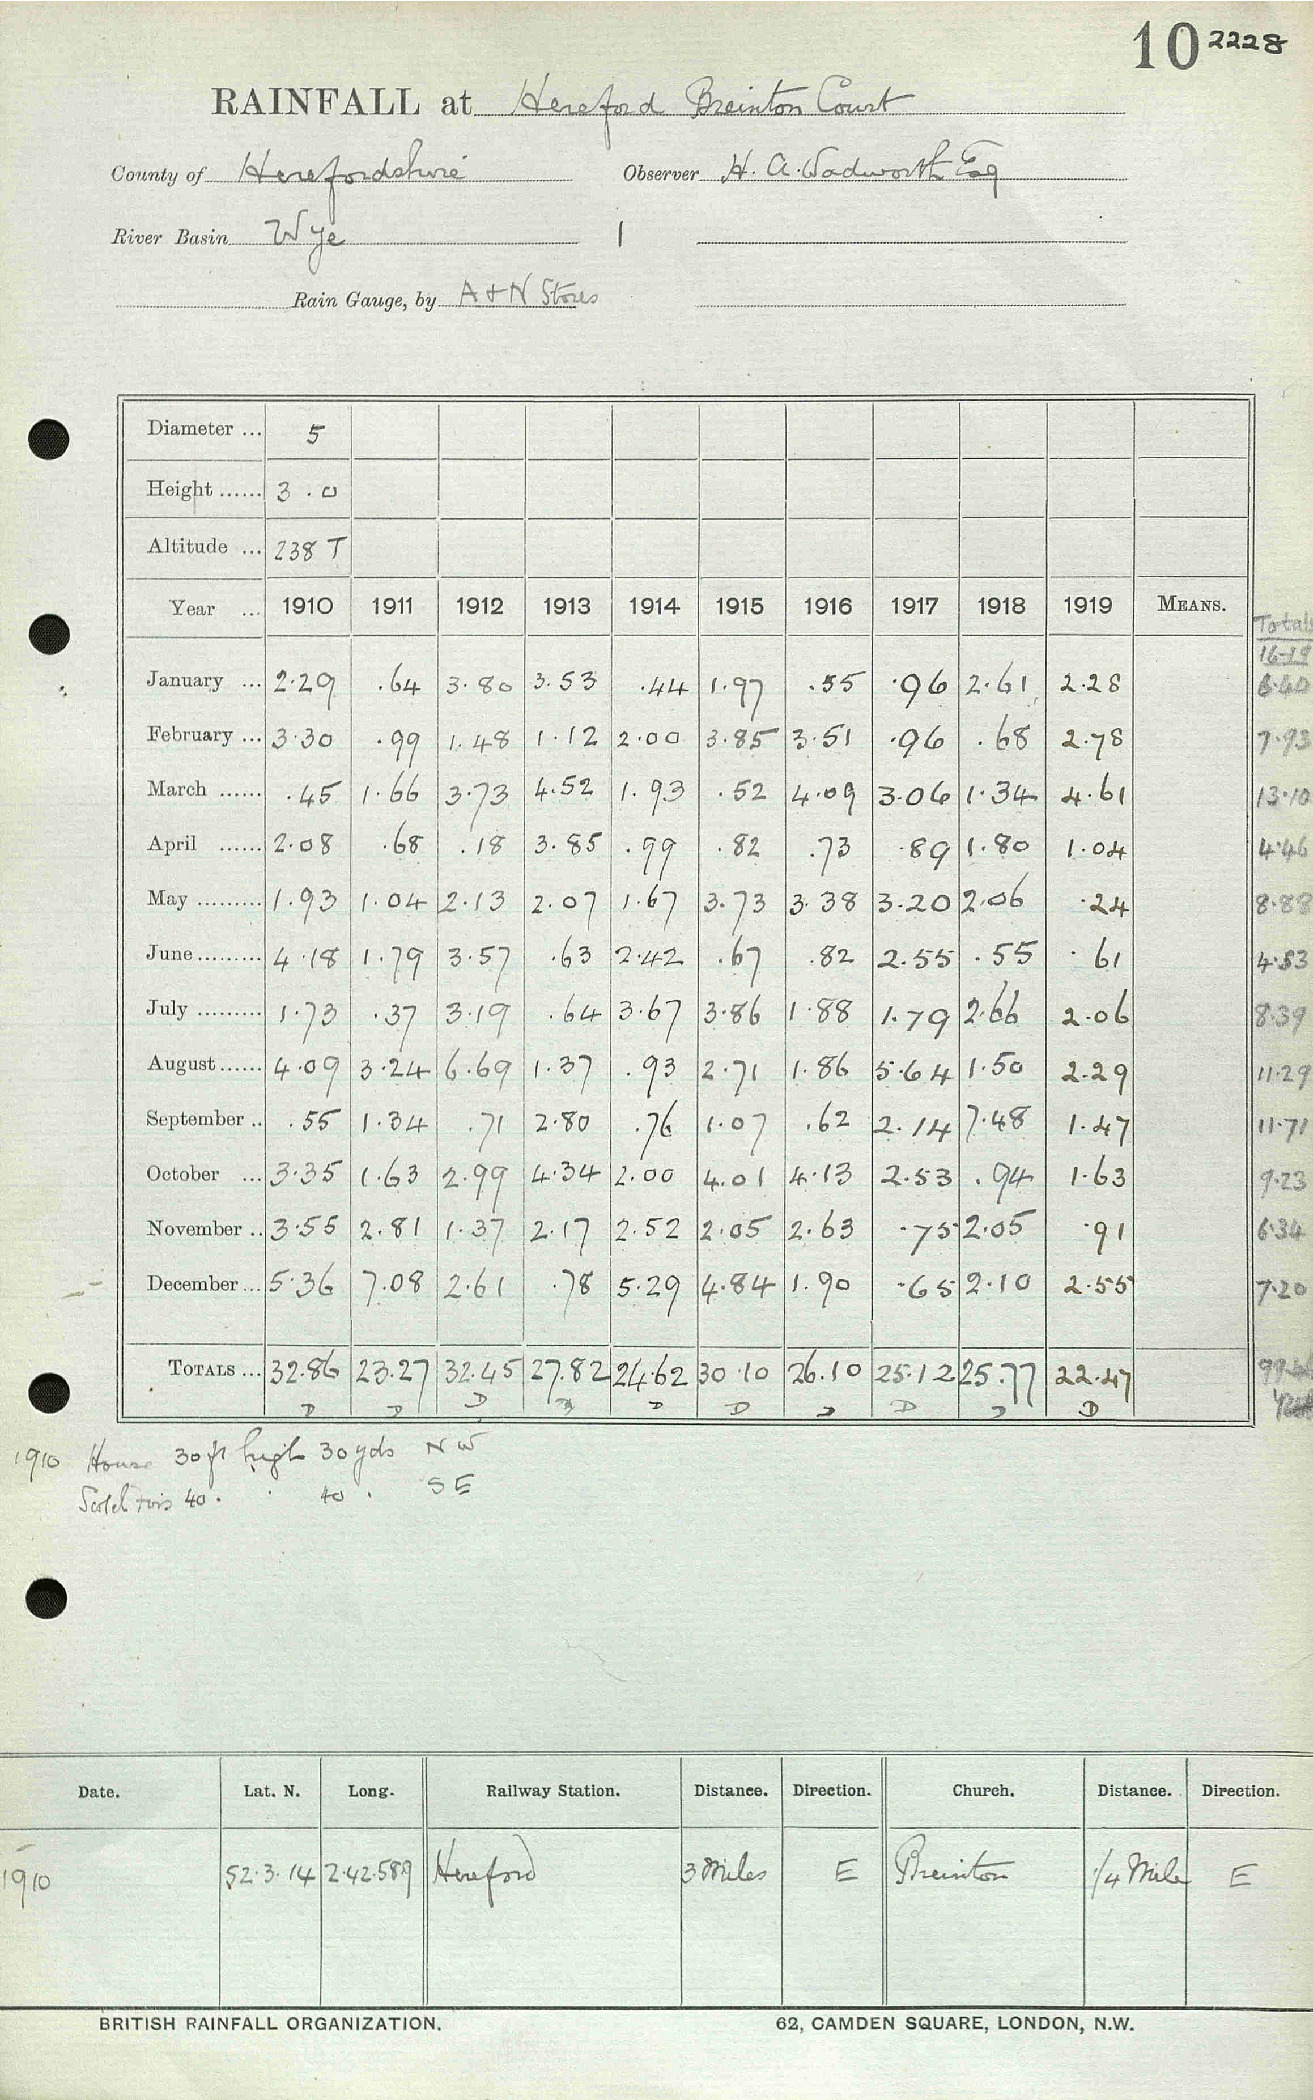 10 2228
RAINFALL at Hereford Breinton Court
County of Herefordshire Observer H. A. Wadworth Esq
River Basin Wye 1
Rain Gauge, by A & N Stores
Diameter ... 5
Height ...... 3.0
Altitude ... 238 T
Year ... 1910 1911 1912 1913 1914 1915 1916 1917 1918 1919 MEANS. Total
16-19
January ... 2.29 .64 3.80 3.53 .44 1.97 .55 .96 2.61 2.28 6.40
February ... 3.30 .99 1.48 1.12 2.00 3.85 3.51 .96 .68 2.78 7.93
March ...... .45 1.66 3.73 4.52 1.93 .52 4.09 3.06 1.34 4.61 13.10
April ...... 2.08 .68 .18 3.85 .99 .82 .73 .89 1.80 1.04 4.46
May ......... 1.93 1.04 2.13 2.07 1.67 3.73 3.38 3.20 2.06 .24 8.88
June ......... 4.18 1.79 3.57 .63 2.42 .67 .82 2.55 .55 .61 4.53
July ......... 1.73 .37 3.19 .64 3.67 3.86 1.88 1.79 2.66 2.06 8.39
August ...... 4.09 3.24 6.69 1.37 .93 2.71 1.86 5.64 1.50 2.29 11.29
September .. .55 1.34 .71 2.80 .76 1.07 .62 2.14 7.48 1.47 11.71
October ... 3.35 1.63 2.99 4.34 2.00 4.01 4.13 2.53 .94 1.63 9.23
November .. 3.55 2.81 1.37 2.17 2.52 2.05 2.63 .75 2.05 .91 6.34
December ... 5.36 7.08 2.61 .78 5.29 4.84 1.90 .65 2.10 2.55 7.20
TOTALS ... 32.86 23.27 32.45 27.82 24.62 30.10 26.10 25.12 25.77 22.47
D D D D D D D D D D
1910 House 30 ft high 30 yds NW
40 . " 40 . SE
Date. Lat. N. Long. Railway Station. Distance. Direction. Church. Distance. Direction.
1910 52.3.14 2.42.589 Hereford 3 Miles E Breinton 1/4 Mile E
BRITISH RAINFALL ORGANIZATION. 62, CAMDEN SQUARE, LONDON, N.W.